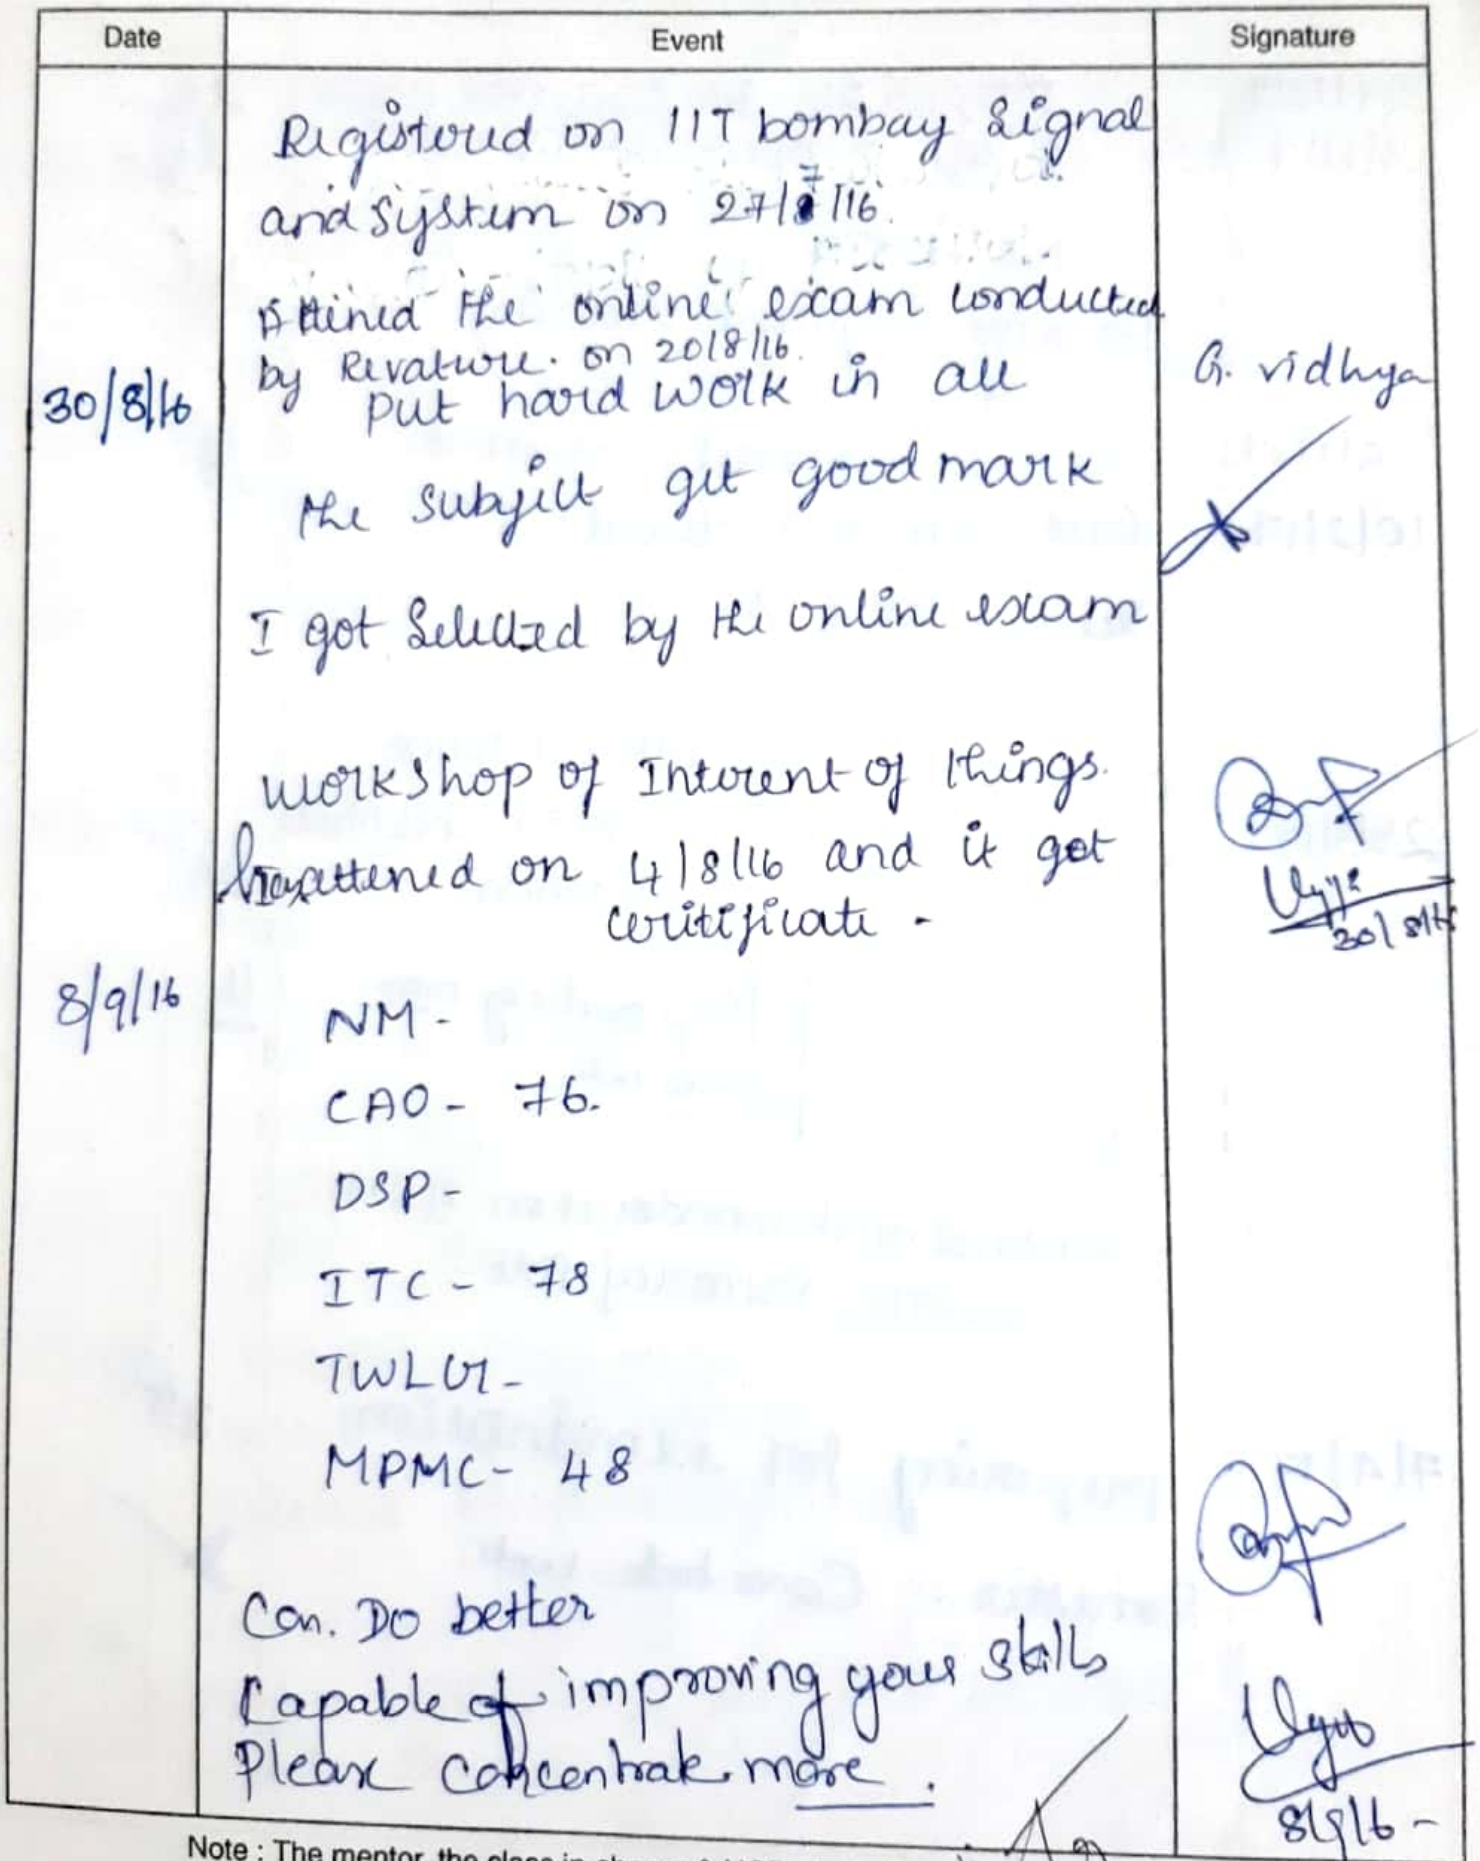 Date Event Signature
Registered on IIT bombay Signal
and System on 27/7/16.
Attened the online exam conducted
by Revature. on 20/8/16.
30/8/16 put hard work in all G. vidhya
the subject get good mark
I got Selected by the online exam
workshop of Interent of things.
attened on 4/8/16 and it got
ceritificate -
30/8/16
8/9/16
NM -
CAO - 76.
DSP -
ITC - 78
TWLG1 -
MPMC - 48
Can. Do better
Capable of improving your skills
Please concentrate more.
8/9/16 -
Note : The mentor, the class in